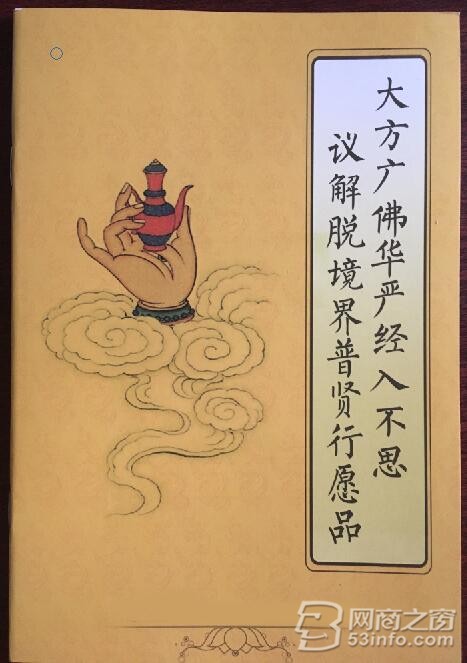 大方广佛华严经入不思
议解脱境界普贤行愿品
网商之窗
53info.com